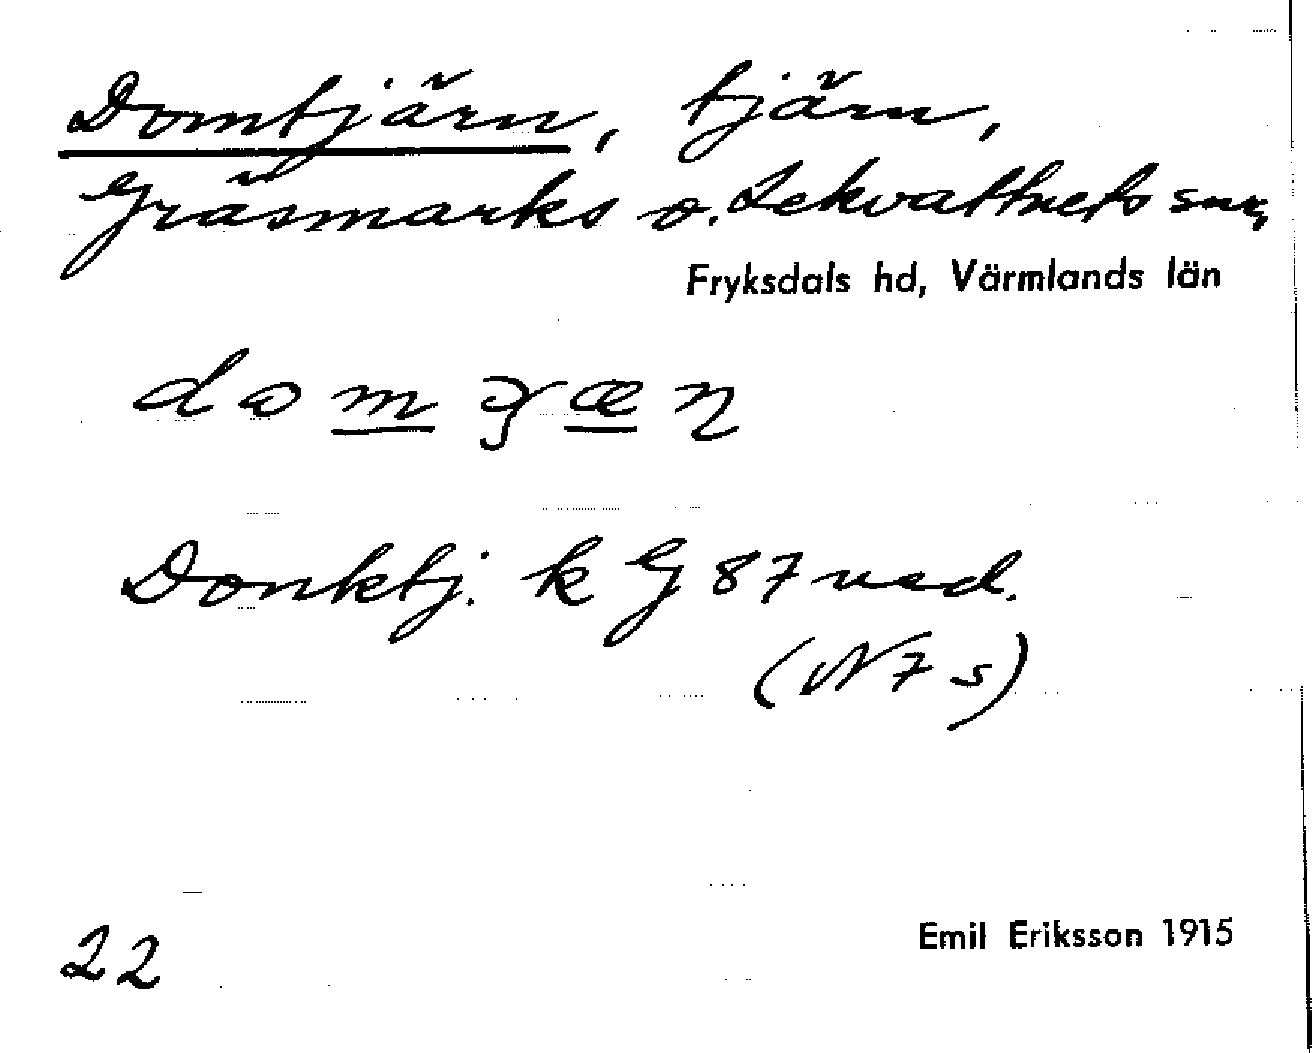 Domtjärn, tjärn,
Gräsmarks o. Lekvattnets snr,
Fryksdals hd, Värmlands län
Donktj. k G 87 ned.
(N 7 s)
22
Emil Eriksson 1915